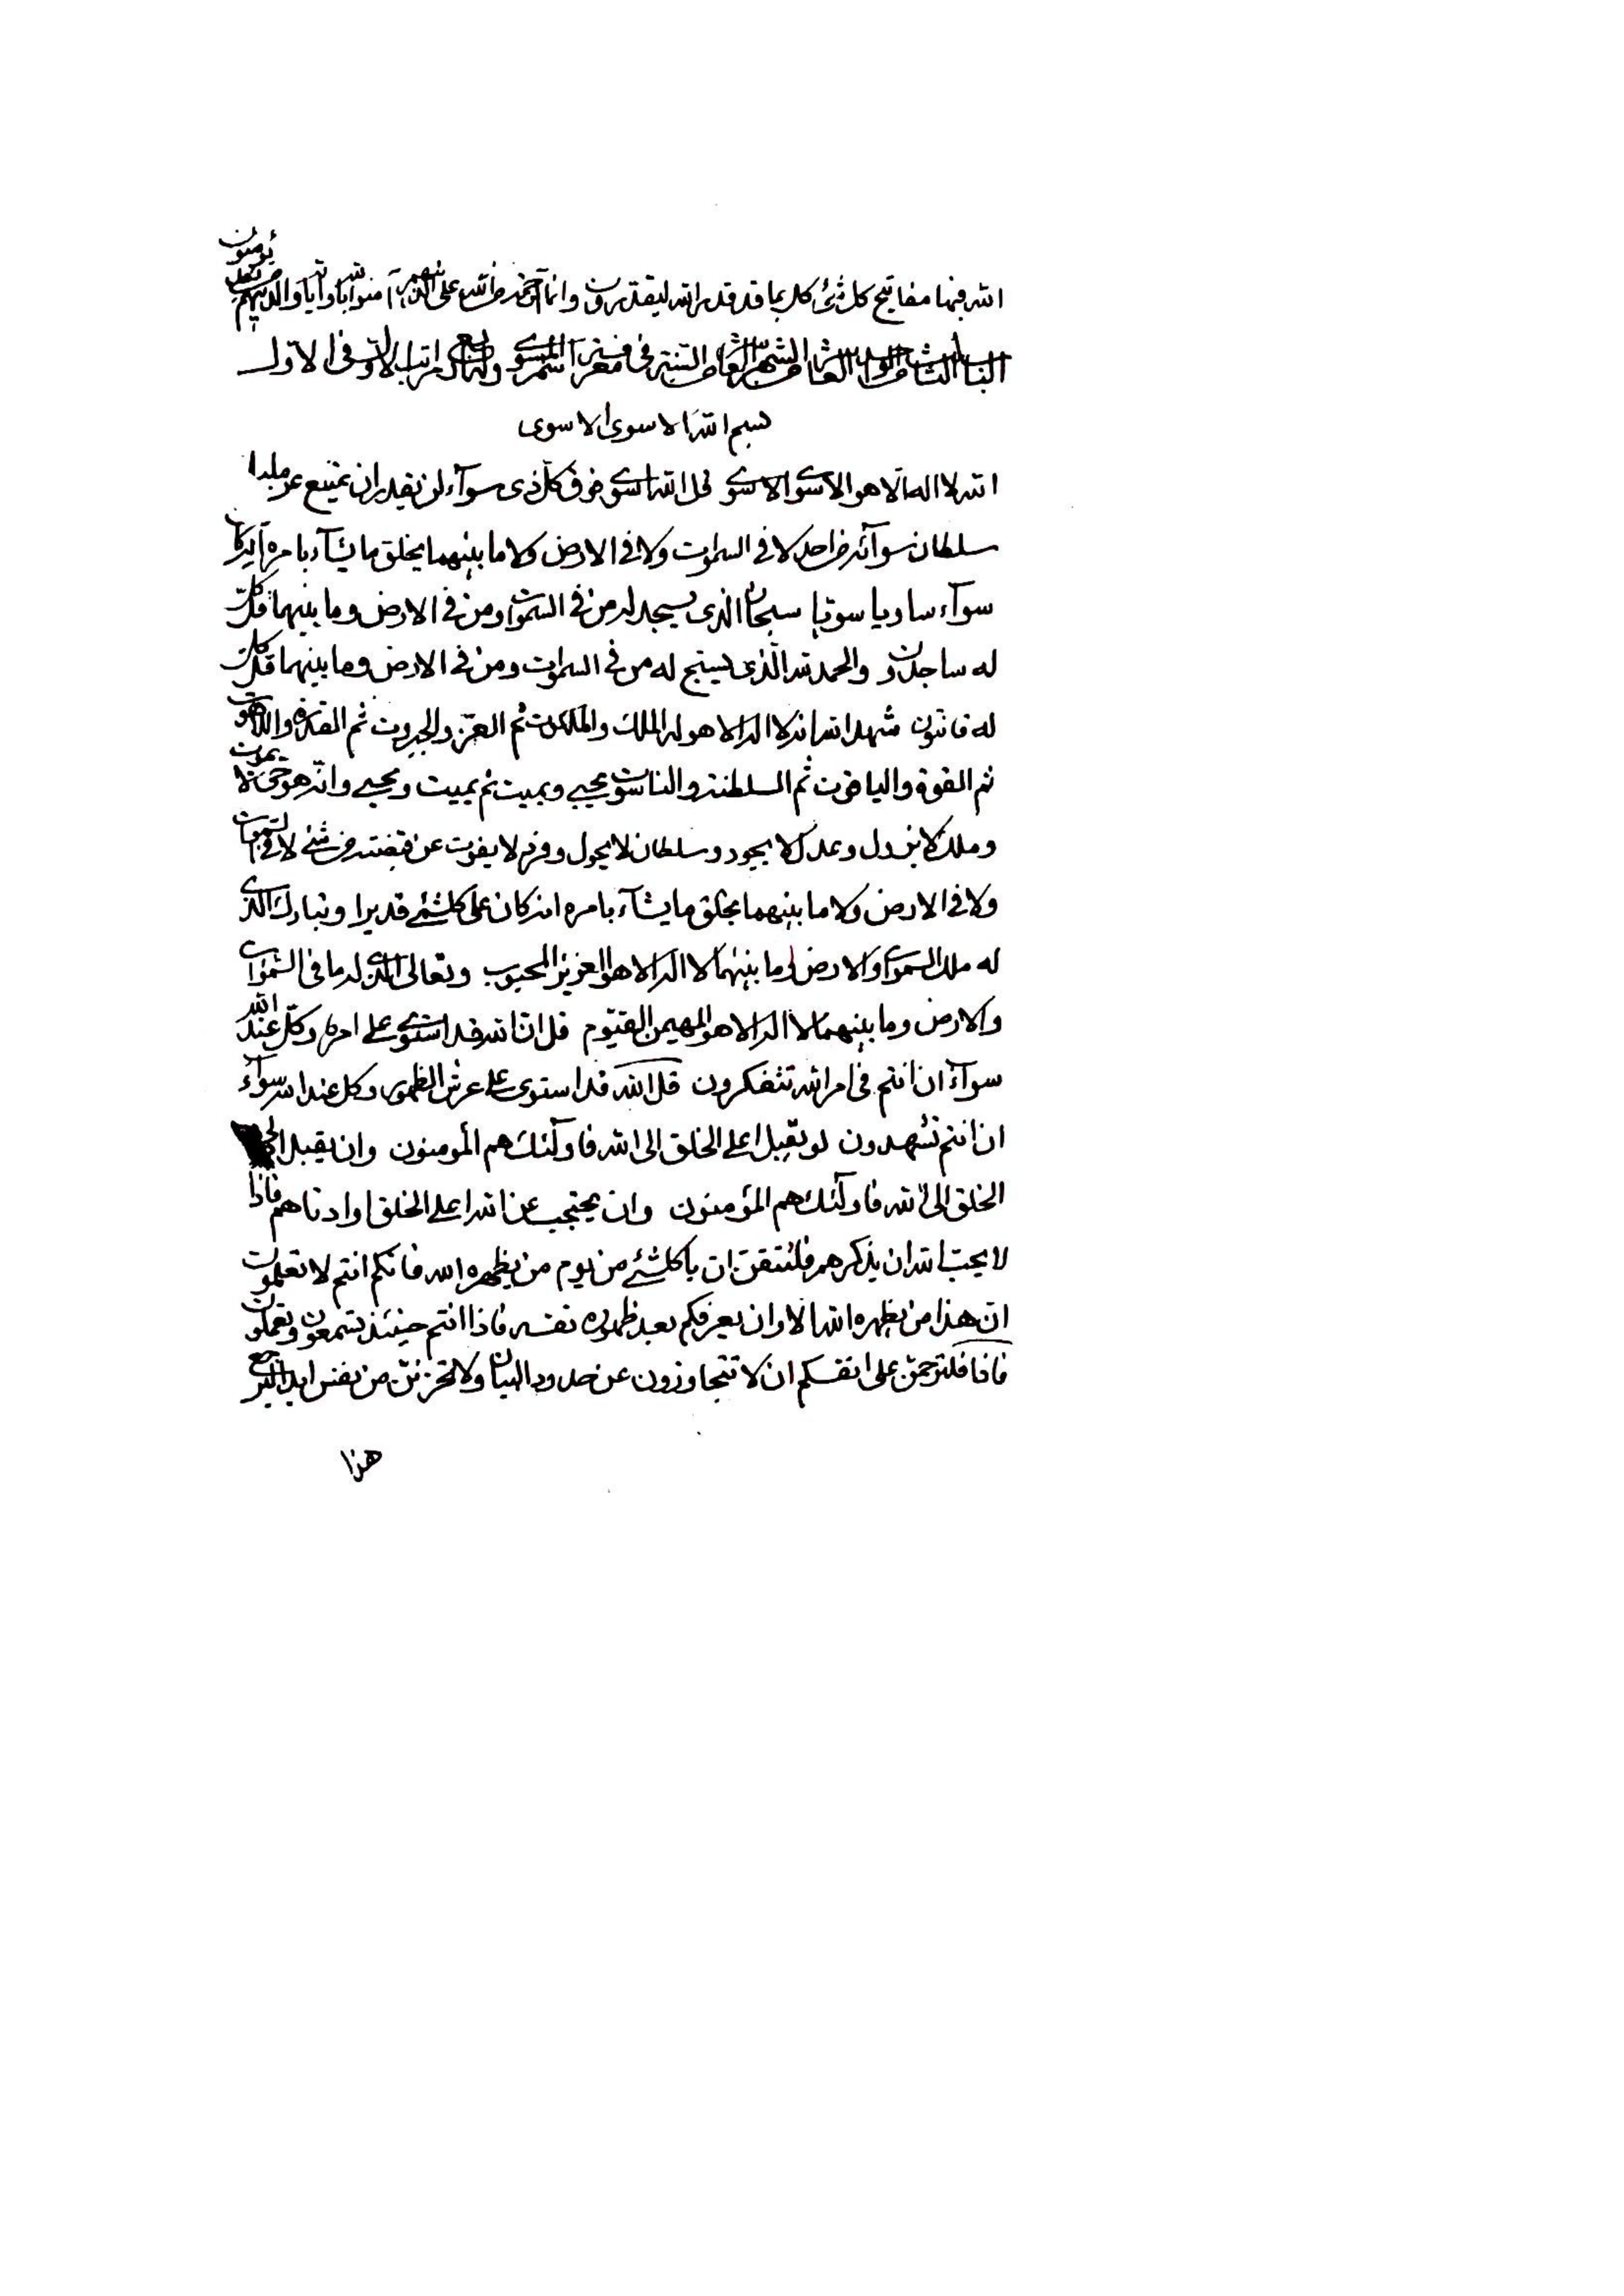 الله فيها مفاتيح كل شئ كل بما قد قدر الله ليقدرون وانما الرحمة من الله على الذينهم آمنوا بالله وآياته والذينهم من بعد يؤمنون
الباب الثالث من الواحد العاشر من الشهر العاشر من السنة فى معرفة اسم المسوى وله اربع مراتب الاول فى الاول
بسم الله الاسوى الاسوى
الله لا اله الا هو الاسوى الاسوى قل الله اسوى فوق كل ذى سوآء لن يقدر ان يمتنع عن مليك
سلطان سوآئه من احد لا فى السموات ولا فى الارض ولا ما بينهما يخلق ما يشآء بامره انه كان
سوآء ساويا سويا سبحان الذى يسجد له من فى السموات ومن فى الارض وما بينهما قل كل
له ساجدون والحمد لله الذى يسبح له من فى السموات ومن فى الارض وما بينهما قل كل
له قانتون شهد الله انه لا اله الا هو له الملك والملكوت ثم العز والجبروت ثم القدرة واللاهوت
ثم القوة والياقوت ثم السلطنة والناسوت يحيى ويميت ثم يميت ويحيى وانه هو حى لا يموت
وملك لا يزول وعدل لا يجور وسلطان لا يحول وفرد لا يفوت عن قبضته من شئ لا فى السموات
ولا فى الارض ولا ما بينهما يخلق ما يشآء بامره انه كان على كلشئ قديرا وتبارك الذى
له ملك السموات والارض وما بينهما لا اله الا هو العزيز المحبوب وتعالى الذى له ما فى السموات
والارض وما بينهما لا اله الا هو المهيمن القيوم قل ان الله قد استوى على امره وكل عند الله
سوآء ان انتم فى امر الله تتفكرون قل الله قد استوى على عرش الظهور وكل عند الله سوآء
ان انتم تشهدون لو يقبل اعلى الخلق الى الله فاولئك هم المؤمنون وان يقبل ادنى
الخلق الى الله فاولئك هم المؤمنون وان يحتجب عن الله اعلى الخلق او ادناهم فاذا
لا يحب الله ان يذكرهم فلتتقن ان يا كلشئ من يوم من يظهره الله فانكم انتم لا تعلمون
ان هذا من يظهره الله الا وان يعرفكم بعد ظهوره نفسه فاذا انتم حينئذ تسمعون وتعملون
فاذا فلترحمن على انفسكم ان لا تتجاوزون عن حدود البيان ولا تحزنن من نفس ابدا لترجع
هذا